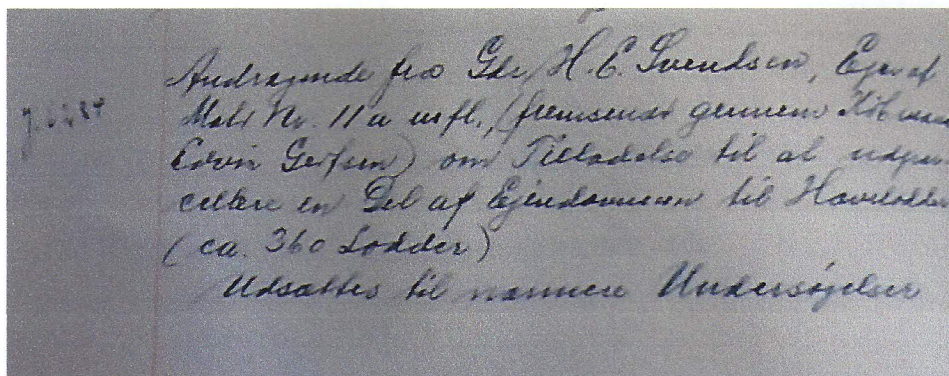 Andragende fra Gdr. H. E. Svendsen, Ejer af
Matr Nr. 11 a m.fl., (fremsendt gennem Købmand
) om Tilladelse til at udpar
cellere en Del af Ejendommen til Havelodder
(ca. 360 Lodder)
Udsættes til nærmere Undersøgelser